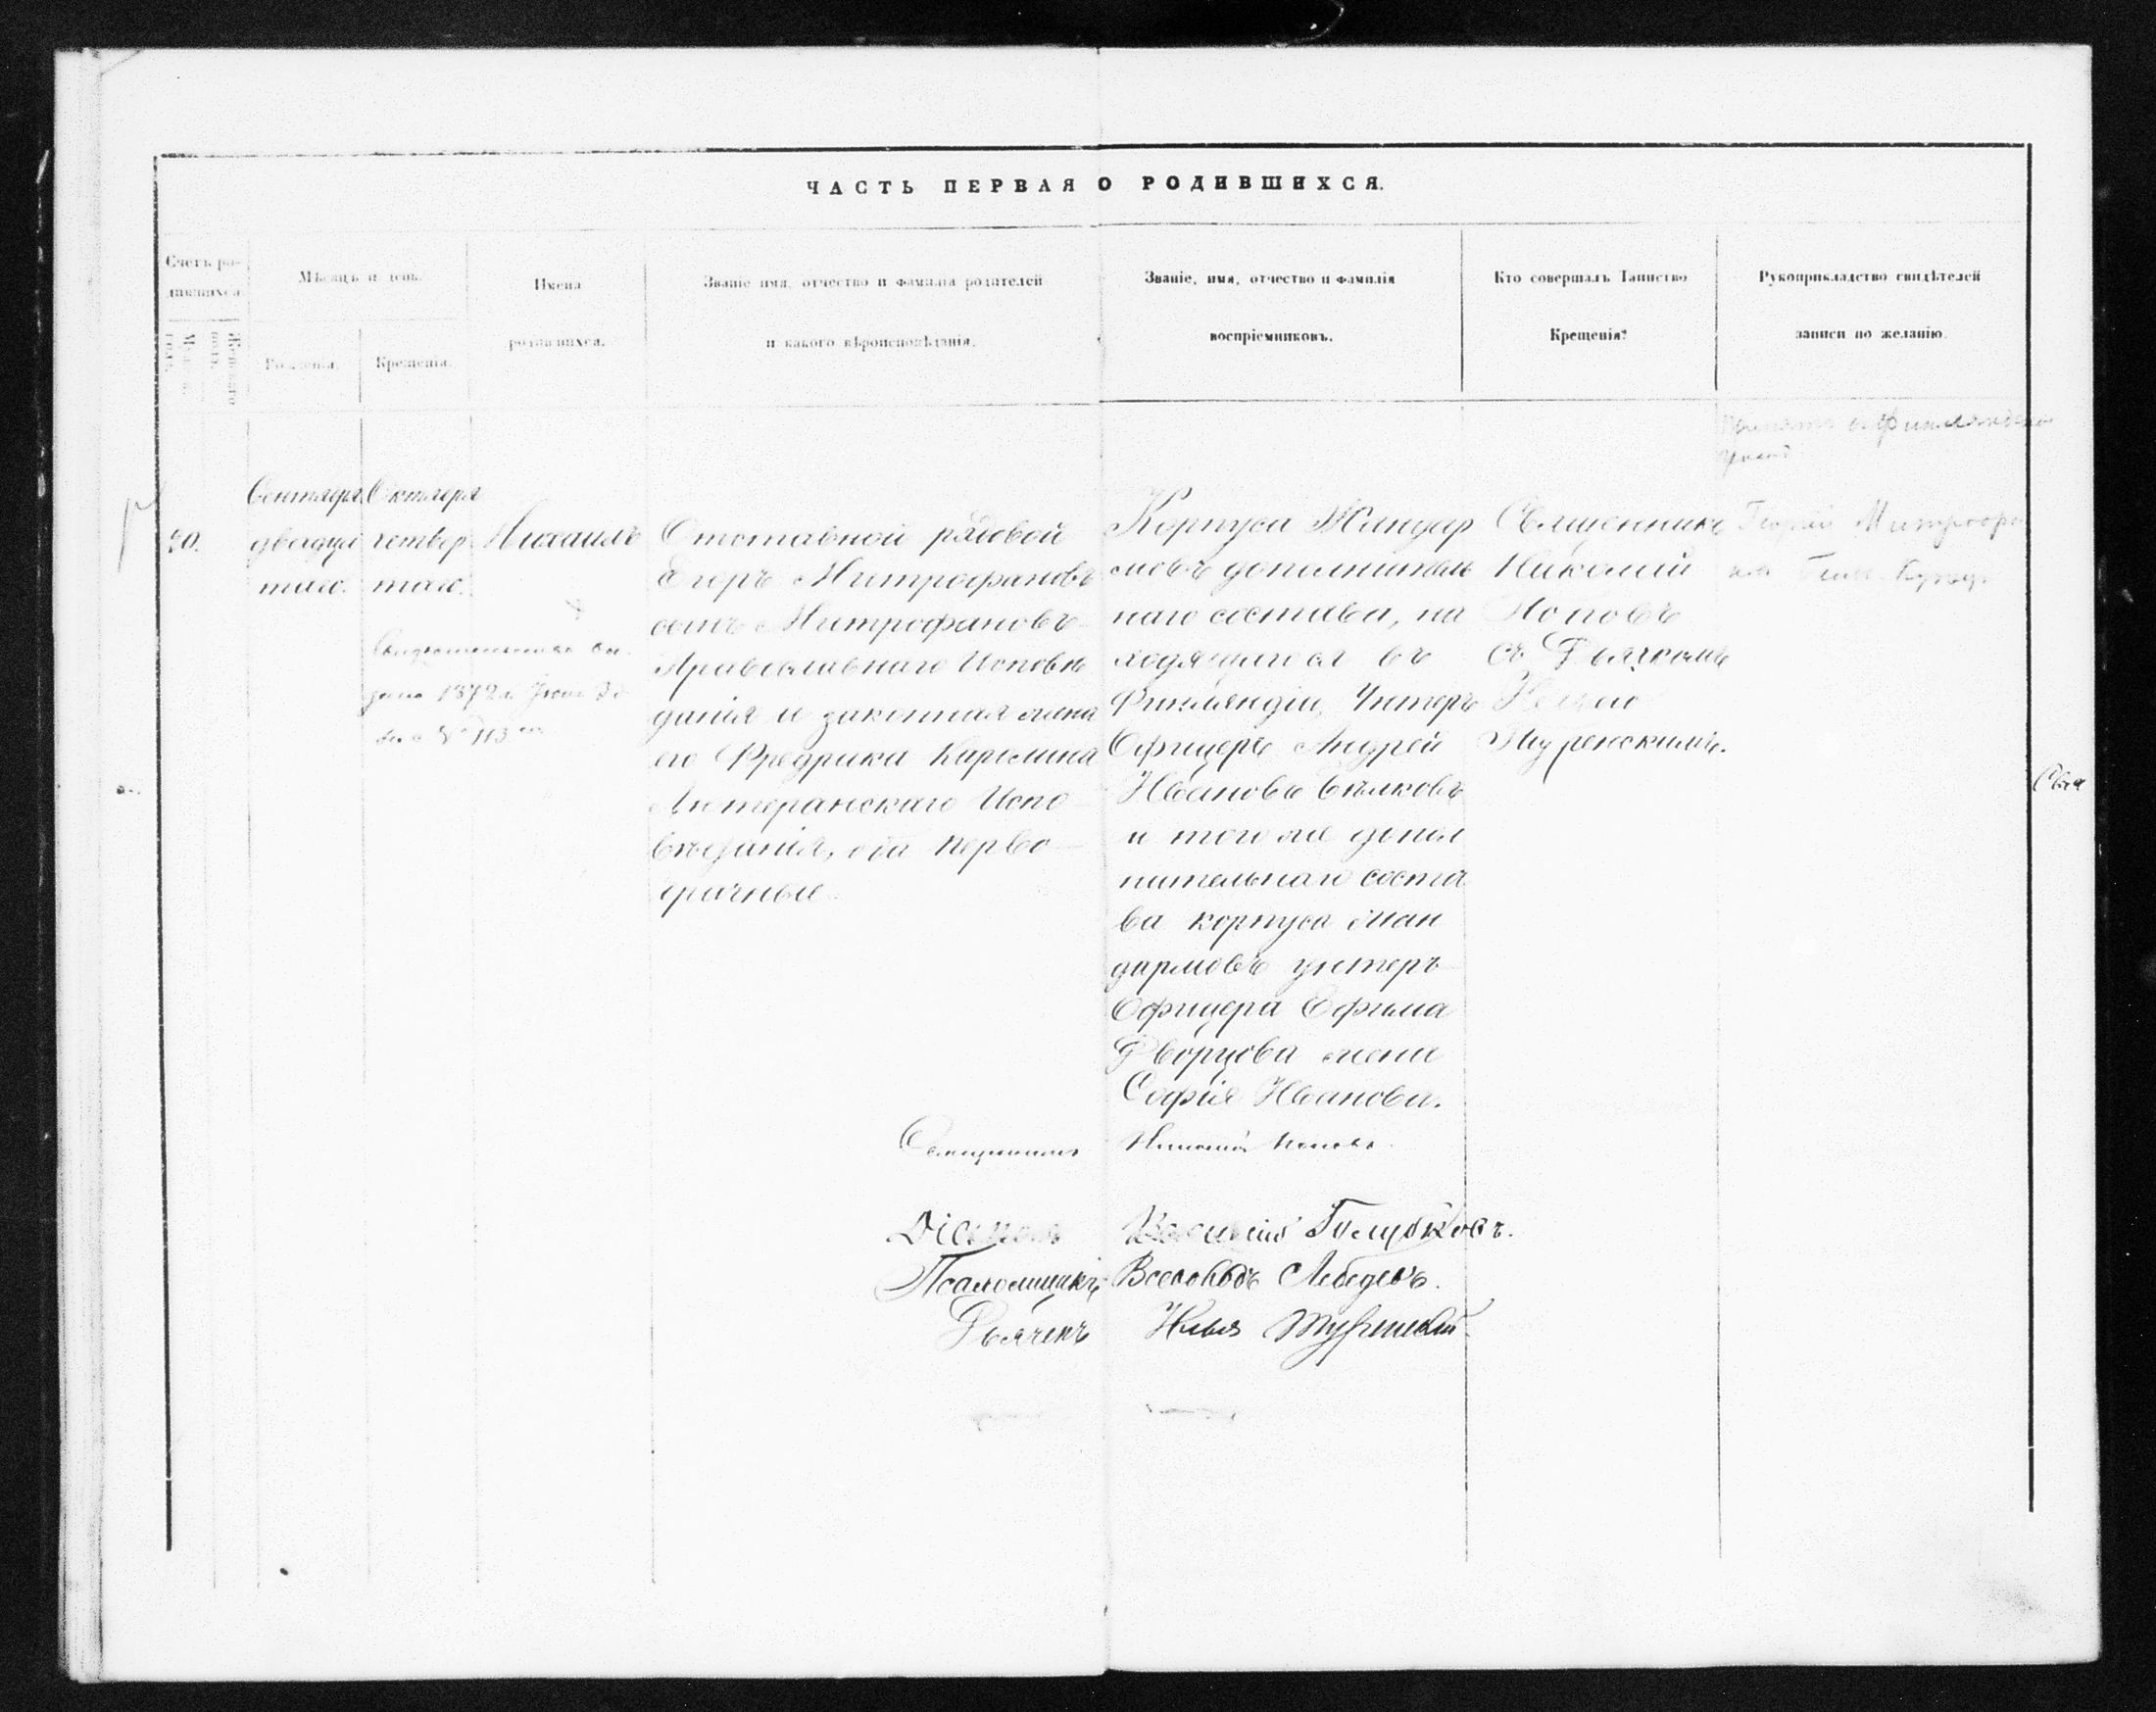 ЧАСТЬ ПЕРВАЯ О РОДИВШИХСЯ.
Счетъ ро-
дившихся
Мѣсяцъ и день.
Рожденія.
Крещенія.
Имена
родившихся.
Званіе имя, отчество и фамилія родителей
и какого вѣроисповѣданія.
Званіе, имя, отчество и фамилія
воспріемниковъ.
Кто совершалъ Таинство
Крещенія?
Рукоприкладство свидѣтелей
записи по желанію.
20.
Сентября
двадца
таго.
Октября
четвер
таго.
1872 г.
№ 113
Михаилъ
Отставной рядовой
Егоръ Митрофановъ
сынъ Митрофановъ
Православнаго Исповѣ
данія и законная жена
его Фредрика Каролина
Лютеранскаго Испо
вѣданія, оба перво
брачные.
Корпуса Жандар
мовъ дополнитель
наго состава, на
ходящагося въ
Финляндіи, Унтеръ
Офицеръ Андрей
Ивановъ
и того же допол
нительнаго соста
ва корпуса жан
дармовъ унтеръ
Офицера Ефима
Дворцова жена
Софія Иванова.
Священникъ
Николай
Поповъ
съ Дьячкомъ
Ильею
Священникъ Николай Поповъ.
Діаконъ Василій Голубковъ.
Псаломщикъ Всеволодъ Лебедевъ.
Дьячекъ Илья
Свя